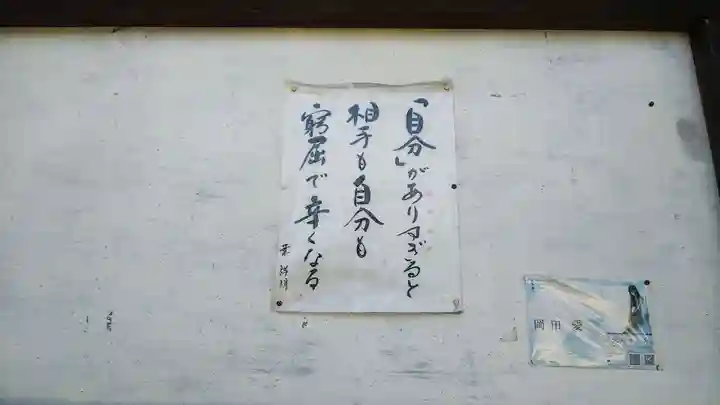 「自分」がありすぎると
相手も自分も
窮屈で辛くなる
葉祥明
岡田 愛